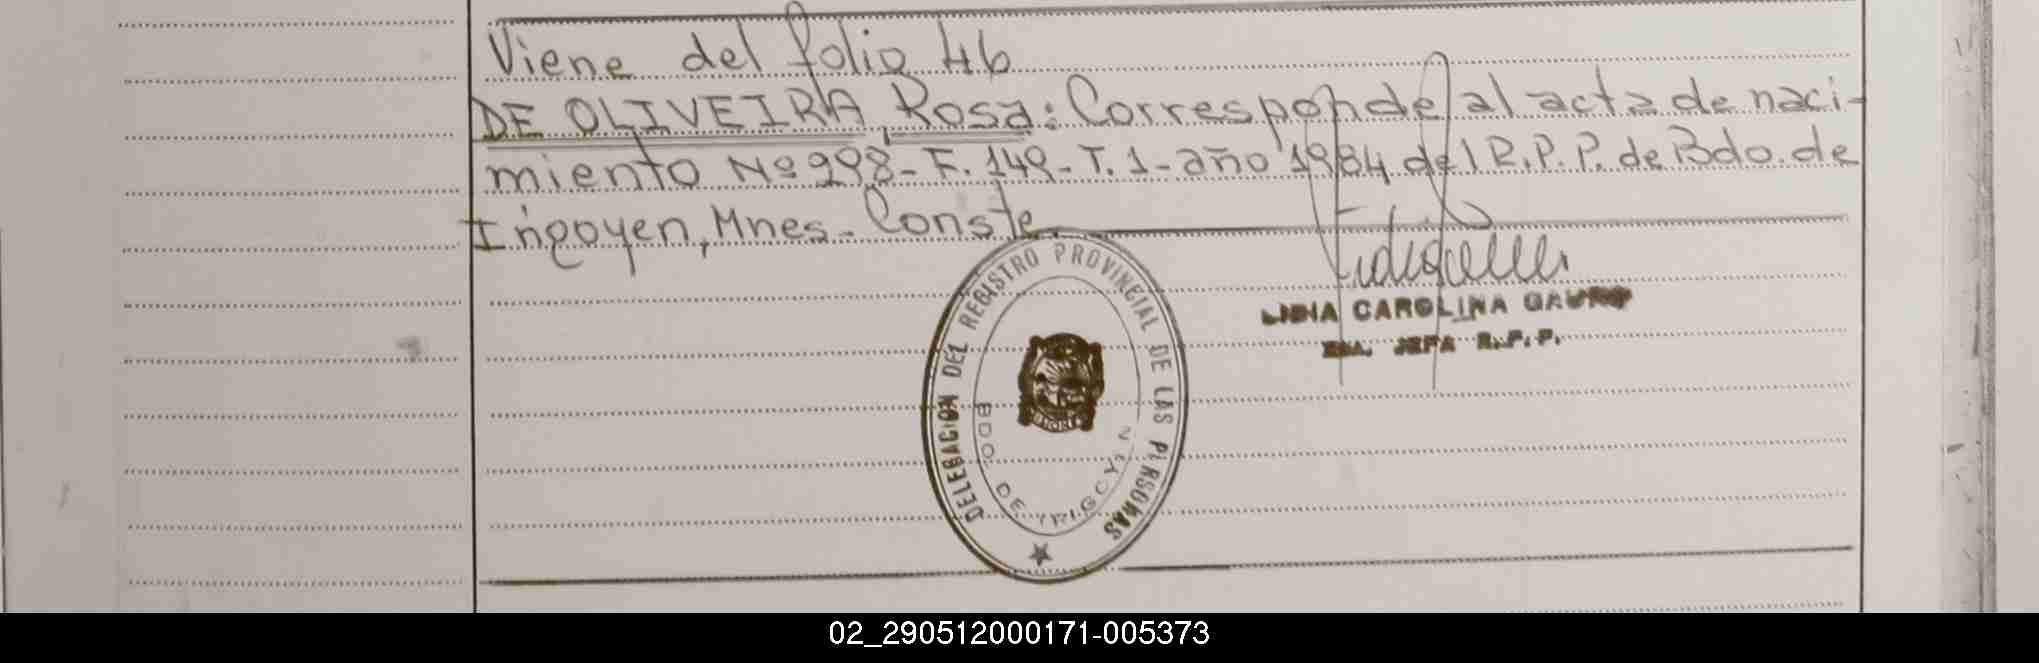 Viene del folio 46
DE OLIVEIRA, Rosa: Corresponde al acta de naci-
miento Nº 298 - F. 149 - T. 1 - año 1984 del R.P.P. de Bdo. de
Irigoyen, Mnes. - Conste
DELEGACION DEL REGISTRO PROVINCIAL DE LAS PERSONAS
BDO. DE IRIGOYEN
LIDIA CAROLINA
JEFA R.P.P.
02_290512000171-005373